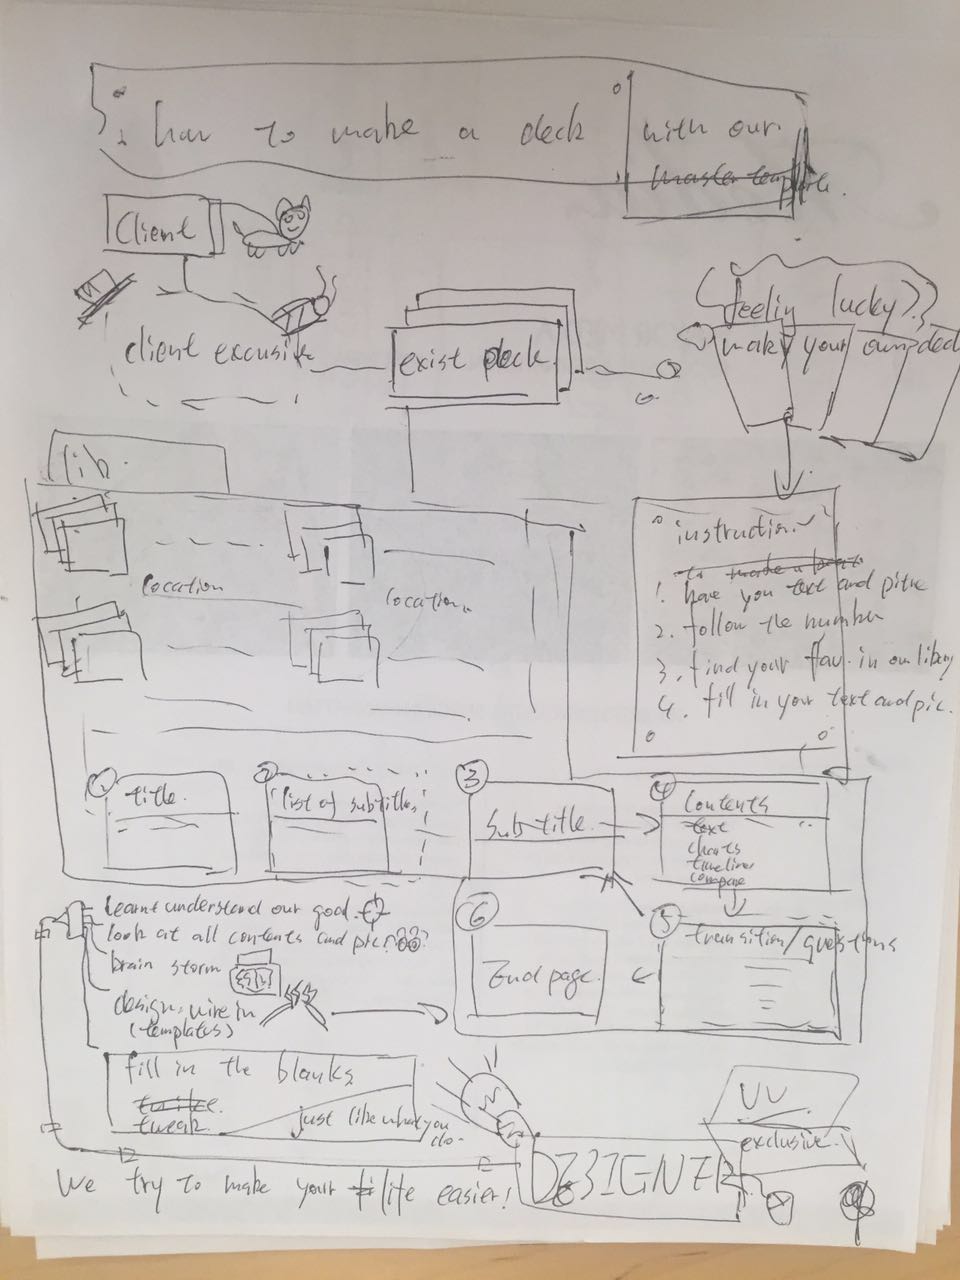 how to make a deck
with our
master template.
Client
client excusive
exist deck
feelin lucky??
make your own deck
lib.
location
location
instruction
1. have you text and pitue
2. follow the number
3. find your flav. in our libary
4. fill in your text and pic.
1
title
2
list of subtitles
3
Sub-title
4
Contents
text
charts
timeline
compare
5
transition/questions
6
End page
learnt understand our goal
look at all contents and pic?
brain storm
design: wire in
(templates)
fill in the blanks
tweak
just like what you
do.
We try to make your life easier!
DESIGNER
UV
exclusive